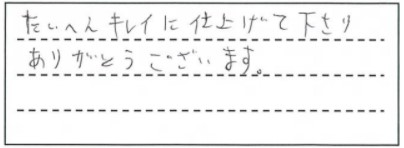 たいへんキレイに仕上げて下さり
ありがとうございます。